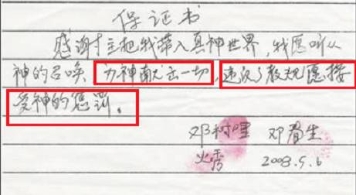 保证书
感谢主把我带入真神世界，我愿听从
神的召唤 为神献出一切，违次了教规愿接
受神的惩罚。
邓树里 邓春生
火秀 2008.5.6